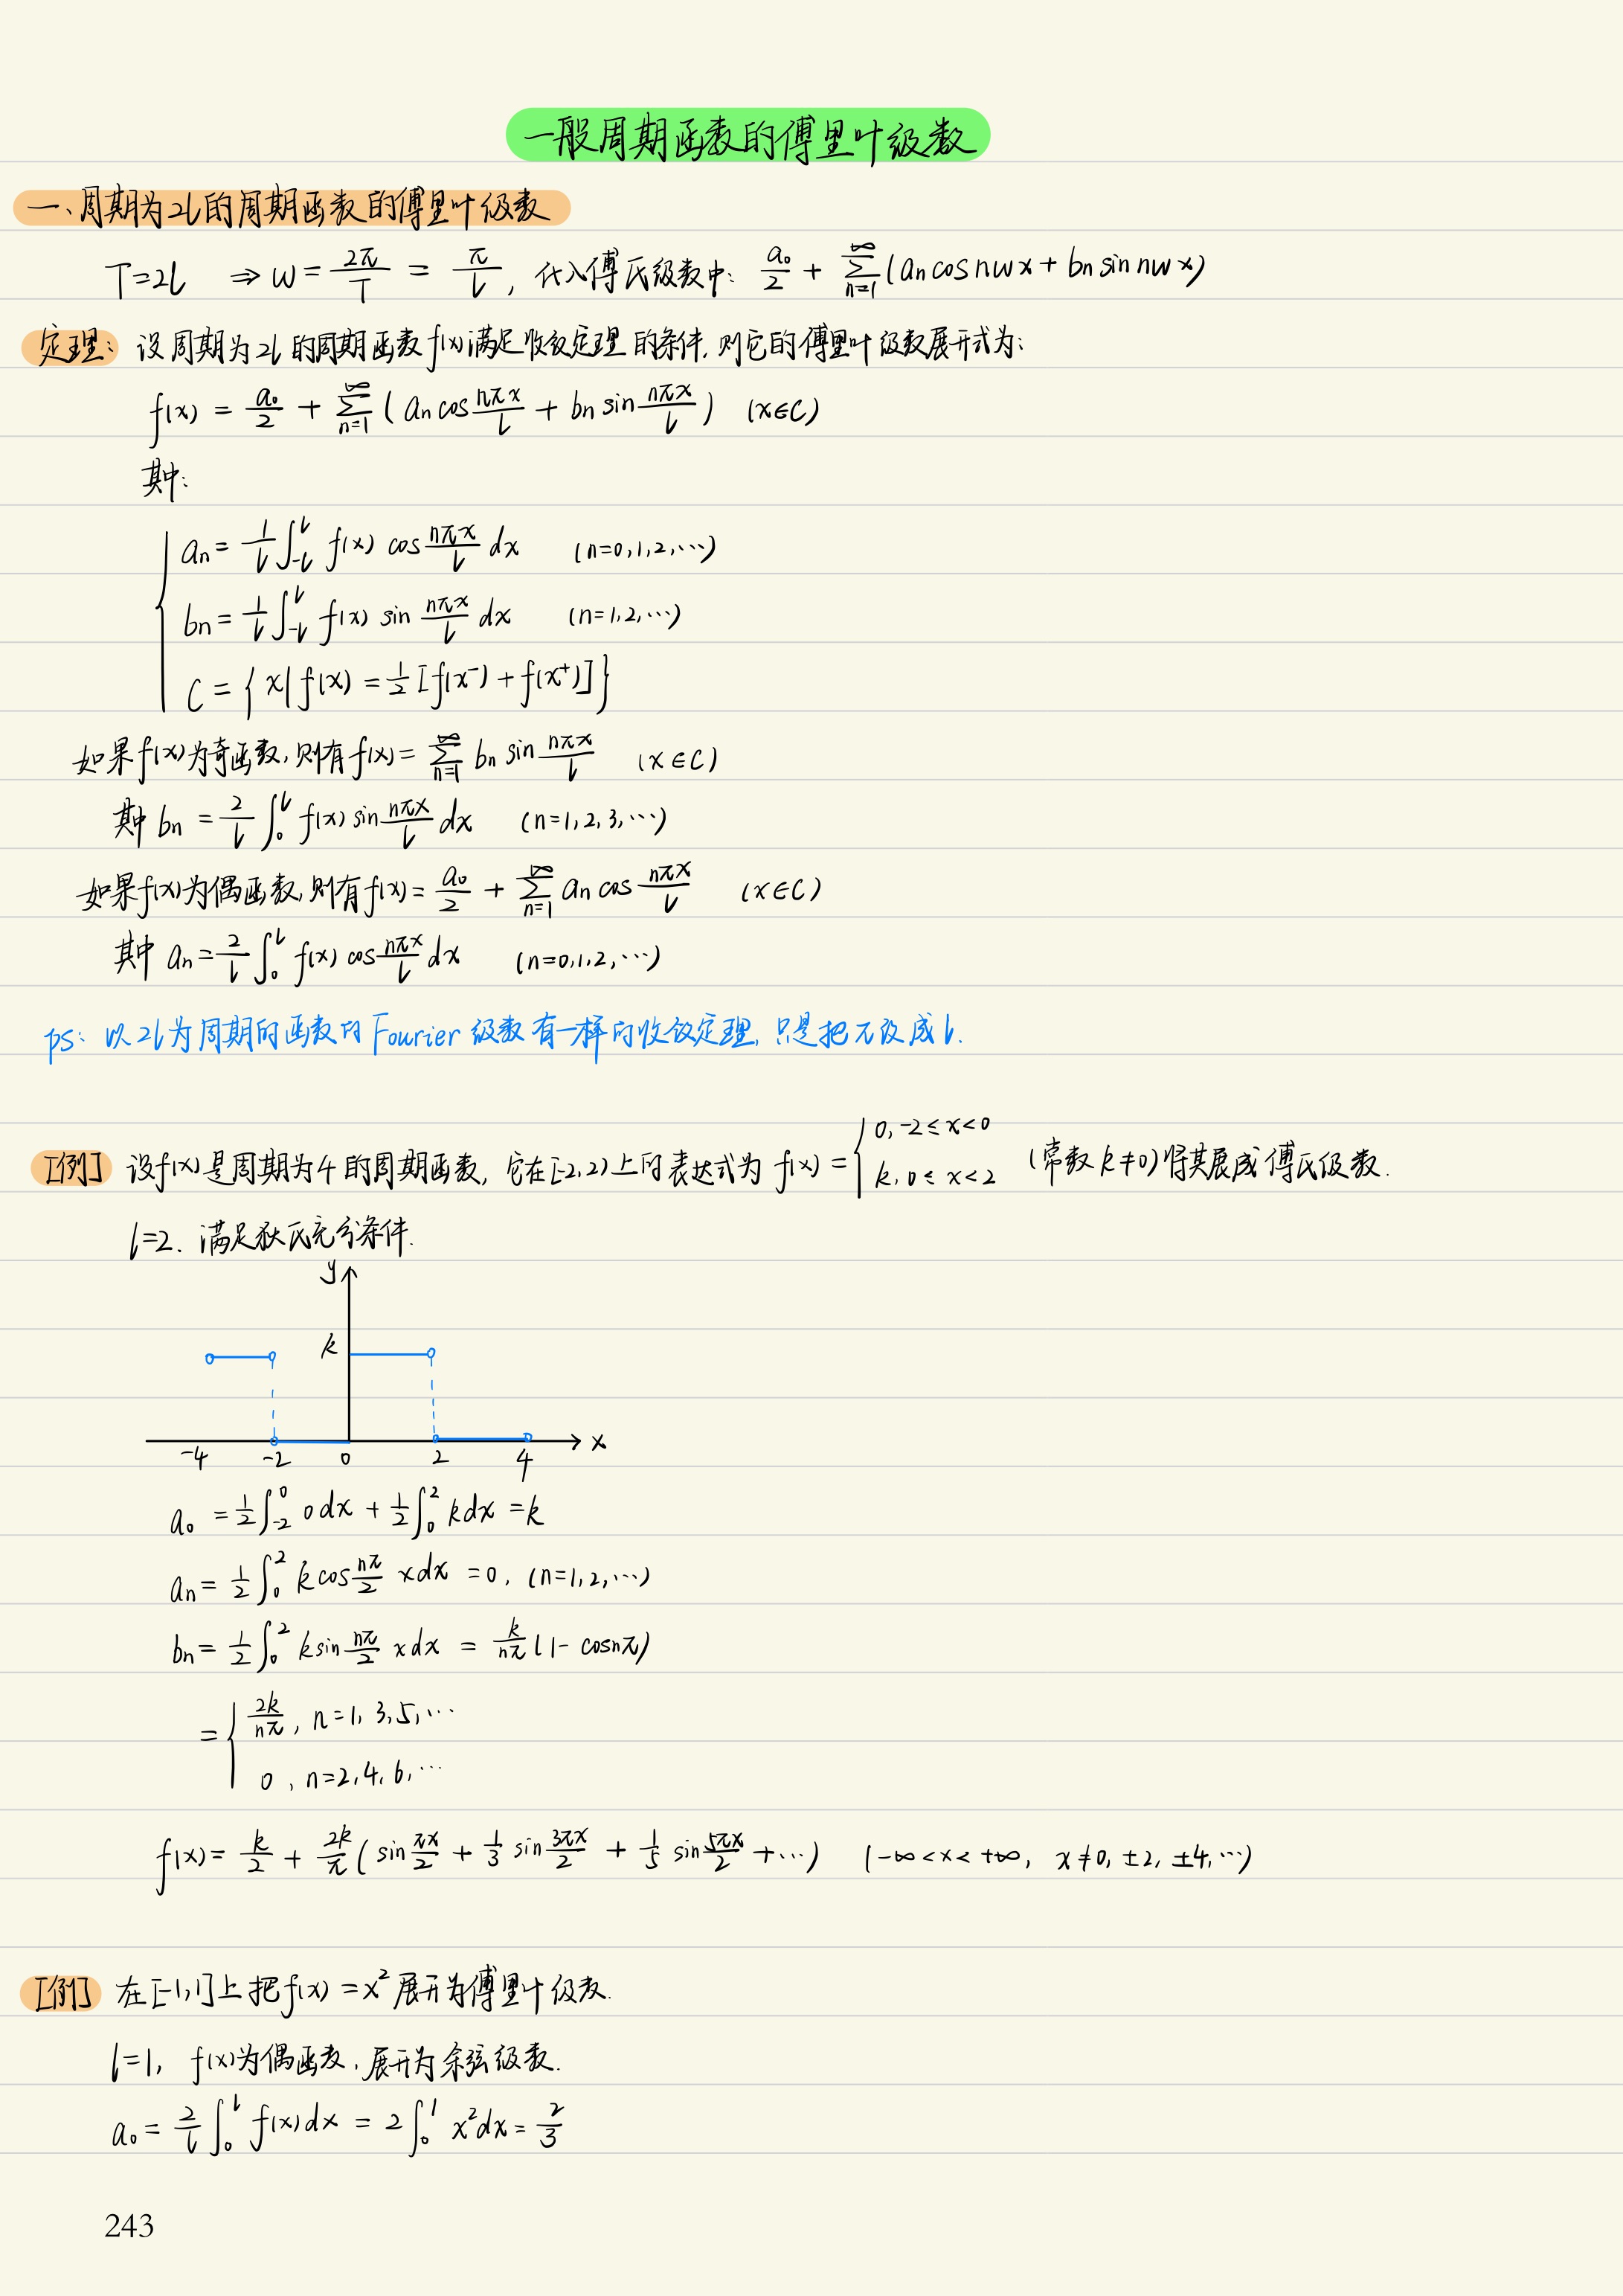 一般周期函数的傅里叶级数
一、周期为2l的周期函数的傅里叶级数
T=2l ⇒ w = 2π/T = π/l, 代入傅氏级数中: a₀/2 + ∑_{n=1}^{∞} (aₙ cos nwx + bₙ sin nwx)
定理: 设周期为2l的周期函数f(x)满足收敛定理的条件, 则它的傅里叶级数展开式为:
f(x) = a₀/2 + ∑_{n=1}^{∞} (aₙ cos nπx/l + bₙ sin nπx/l) (x∈C)
其中:
aₙ = 1/l ∫_{-l}^{l} f(x) cos nπx/l dx (n=0,1,2,…)
bₙ = 1/l ∫_{-l}^{l} f(x) sin nπx/l dx (n=1,2,…)
C = {x | f(x) = 1/2 [f(x⁻) + f(x⁺)]}
如果f(x)为奇函数, 则有f(x) = ∑_{n=1}^{∞} bₙ sin nπx/l (x∈C)
其中 bₙ = 2/l ∫_0^l f(x) sin nπx/l dx (n=1,2,3,…)
如果f(x)为偶函数, 则有f(x) = a₀/2 + ∑_{n=1}^{∞} aₙ cos nπx/l (x∈C)
其中 aₙ = 2/l ∫_0^l f(x) cos nπx/l dx (n=0,1,2,…)
ps: 以2l为周期的函数的Fourier级数有一样的收敛定理, 只是把π改成l.
[例] 设f(x)是周期为4的周期函数, 它在[-2,2)上的表达式为 f(x) = { 0, -2≤x<0 ; k, 0≤x<2 (常数k≠0)将其展成傅氏级数.
l=2. 满足狄氏充分条件.
y
k
-4 -2 0 2 4 x
a₀ = 1/2 ∫_{-2}^{0} 0dx + 1/2 ∫_0^2 kdx = k
aₙ = 1/2 ∫_0^2 k cos nπ/2 xdx = 0, (n=1,2,…)
bₙ = 1/2 ∫_0^2 k sin nπ/2 xdx = k/nπ (1- cosnπ)
= { 2k/nπ, n=1,3,5,…
0, n=2,4,6,…
f(x) = k/2 + 2k/π (sin πx/2 + 1/3 sin 3πx/2 + 1/5 sin 5πx/2 + …) (-∞<x<+∞, x≠0, ±2, ±4,…)
[例] 在[-1,1]上把f(x) = x² 展开为傅里叶级数.
l=1, f(x)为偶函数, 展开为余弦级数.
a₀ = 2/l ∫_0^l f(x)dx = 2∫_0^1 x²dx = 2/3
243